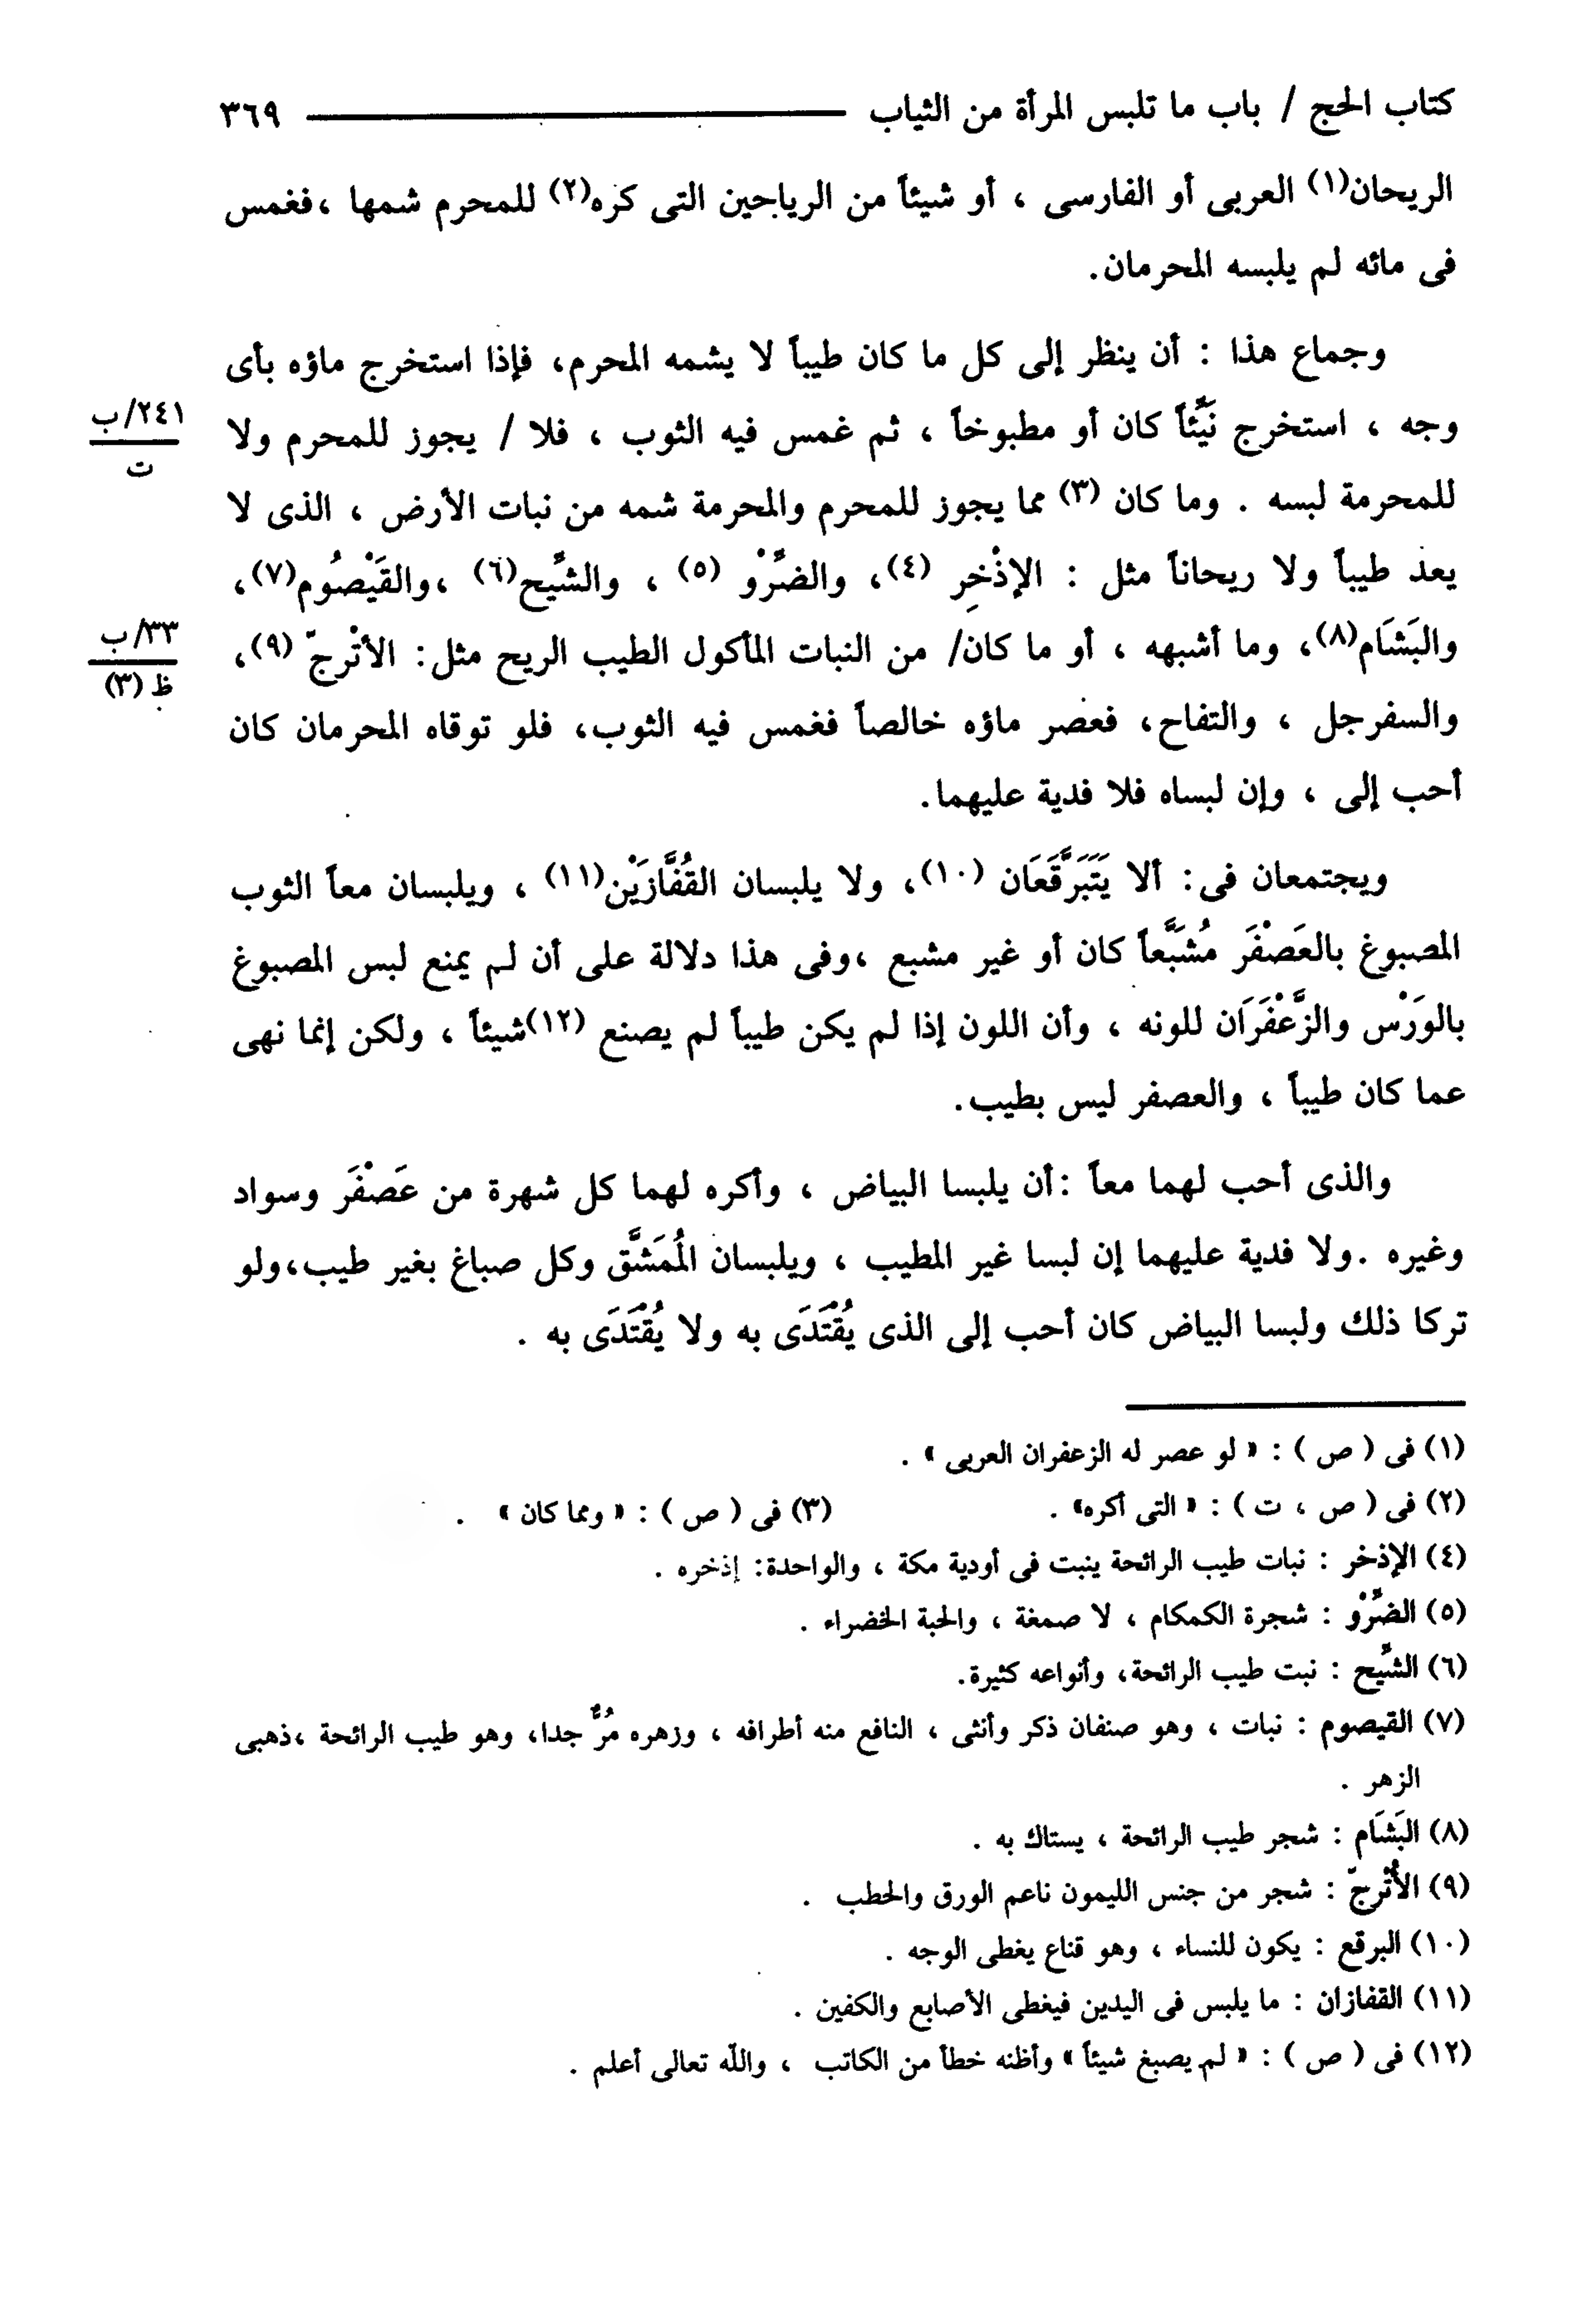 كتاب الحج / باب ما تلبس المرأة من الثياب ٣٦٩
الريحان(١) العربى أو الفارسى ، أو شيئاً من الرياحين التى كره(٢) للمحرم شمها ،فغمس
فى مائه لم يلبسه المحرمان.
وجماع هذا : أن ينظر إلى كل ما كان طيباً لا يشمه المحرم، فإذا استخرج ماؤه بأى
وجه ، استخرج نَيِّئاً كان أو مطبوخاً ، ثم غمس فيه الثوب ، فلا / يجوز للمحرم ولا
٢٤١/ب
ت
للمحرمة لبسه . وما كان (٣) مما يجوز للمحرم والمحرمة شمه من نبات الأرض ، الذى لا
يعد طيباً ولا ريحاناً مثل : الإذْخِر (٤)، والضِّرْو (٥) ، والشِّيح(٦) ،والقَيْصُوم(٧)،
والبَشَام(٨)، وما أشبهه ، أو ما كان/ من النبات المأكول الطيب الريح مثل: الأتْرجّ (٩)،
٣٣/ب
ظ (٣)
والسفرجل ، والتفاح، فعصر ماؤه خالصاً فغمس فيه الثوب، فلو توقاه المحرمان كان
أحب إلى ، وإن لبساه فلا فدية عليهما.
ويجتمعان فى: ألا يَتَبَرَّقَعَان (١٠)، ولا يلبسان القُفَّازَيْن(١١) ، ويلبسان معاً الثوب
المصبوغ بالعَصْفَر مُشَبَّعاً كان أو غير مشبع ،وفى هذا دلالة على أن لم يمنع لبس المصبوغ
بالوَرْس والزَّعْفَرَان للونه ، وأن اللون إذا لم يكن طيباً لم يصنع (١٢)شيئاً ، ولكن إنما نهى
عما كان طيباً ، والعصفر ليس بطيب.
والذى أحب لهما معاً :أن يلبسا البياض ، وأكره لهما كل شهرة من عَصْفَر وسواد
وغيره .ولا فدية عليهما إن لبسا غير المطيب ، ويلبسان المُمَشَّق وكل صباغ بغير طيب،ولو
تركا ذلك ولبسا البياض كان أحب إلى الذى يُقْتَدَى به ولا يُقْتَدَى به .
(١) فى ( ص ) : « لو عصر له الزعفران العربى » .
(٢) فى ( ص ، ت ) : « التى أكره» . (٣) فى ( ص ) : « ومما كان » .
(٤) الإذخر : نبات طيب الرائحة ينبت فى أودية مكة ، والواحدة: إذخره .
(٥) الضِّرْو : شجرة الكمكام ، لا صمغة ، والحبة الخضراء .
(٦) الشِّيح : نبت طيب الرائحة، وأنواعه كثيرة.
(٧) القيصوم : نبات ، وهو صنفان ذكر وأنثى ، النافع منه أطرافه ، وزهره مُرٌّ جدا، وهو طيب الرائحة ،ذهبى
الزهر .
(٨) البَشَام : شجر طيب الرائحة ، يستاك به .
(٩) الأُتْرجّ : شجر من جنس الليمون ناعم الورق والحطب .
(١٠) البرقع : يكون للنساء ، وهو قناع يغطى الوجه .
(١١) القفازان : ما يلبس فى اليدين فيغطى الأصابع والكفين .
(١٢) فى ( ص ) : « لم يصبغ شيئاً » وأظنه خطأ من الكاتب ، والله تعالى أعلم .